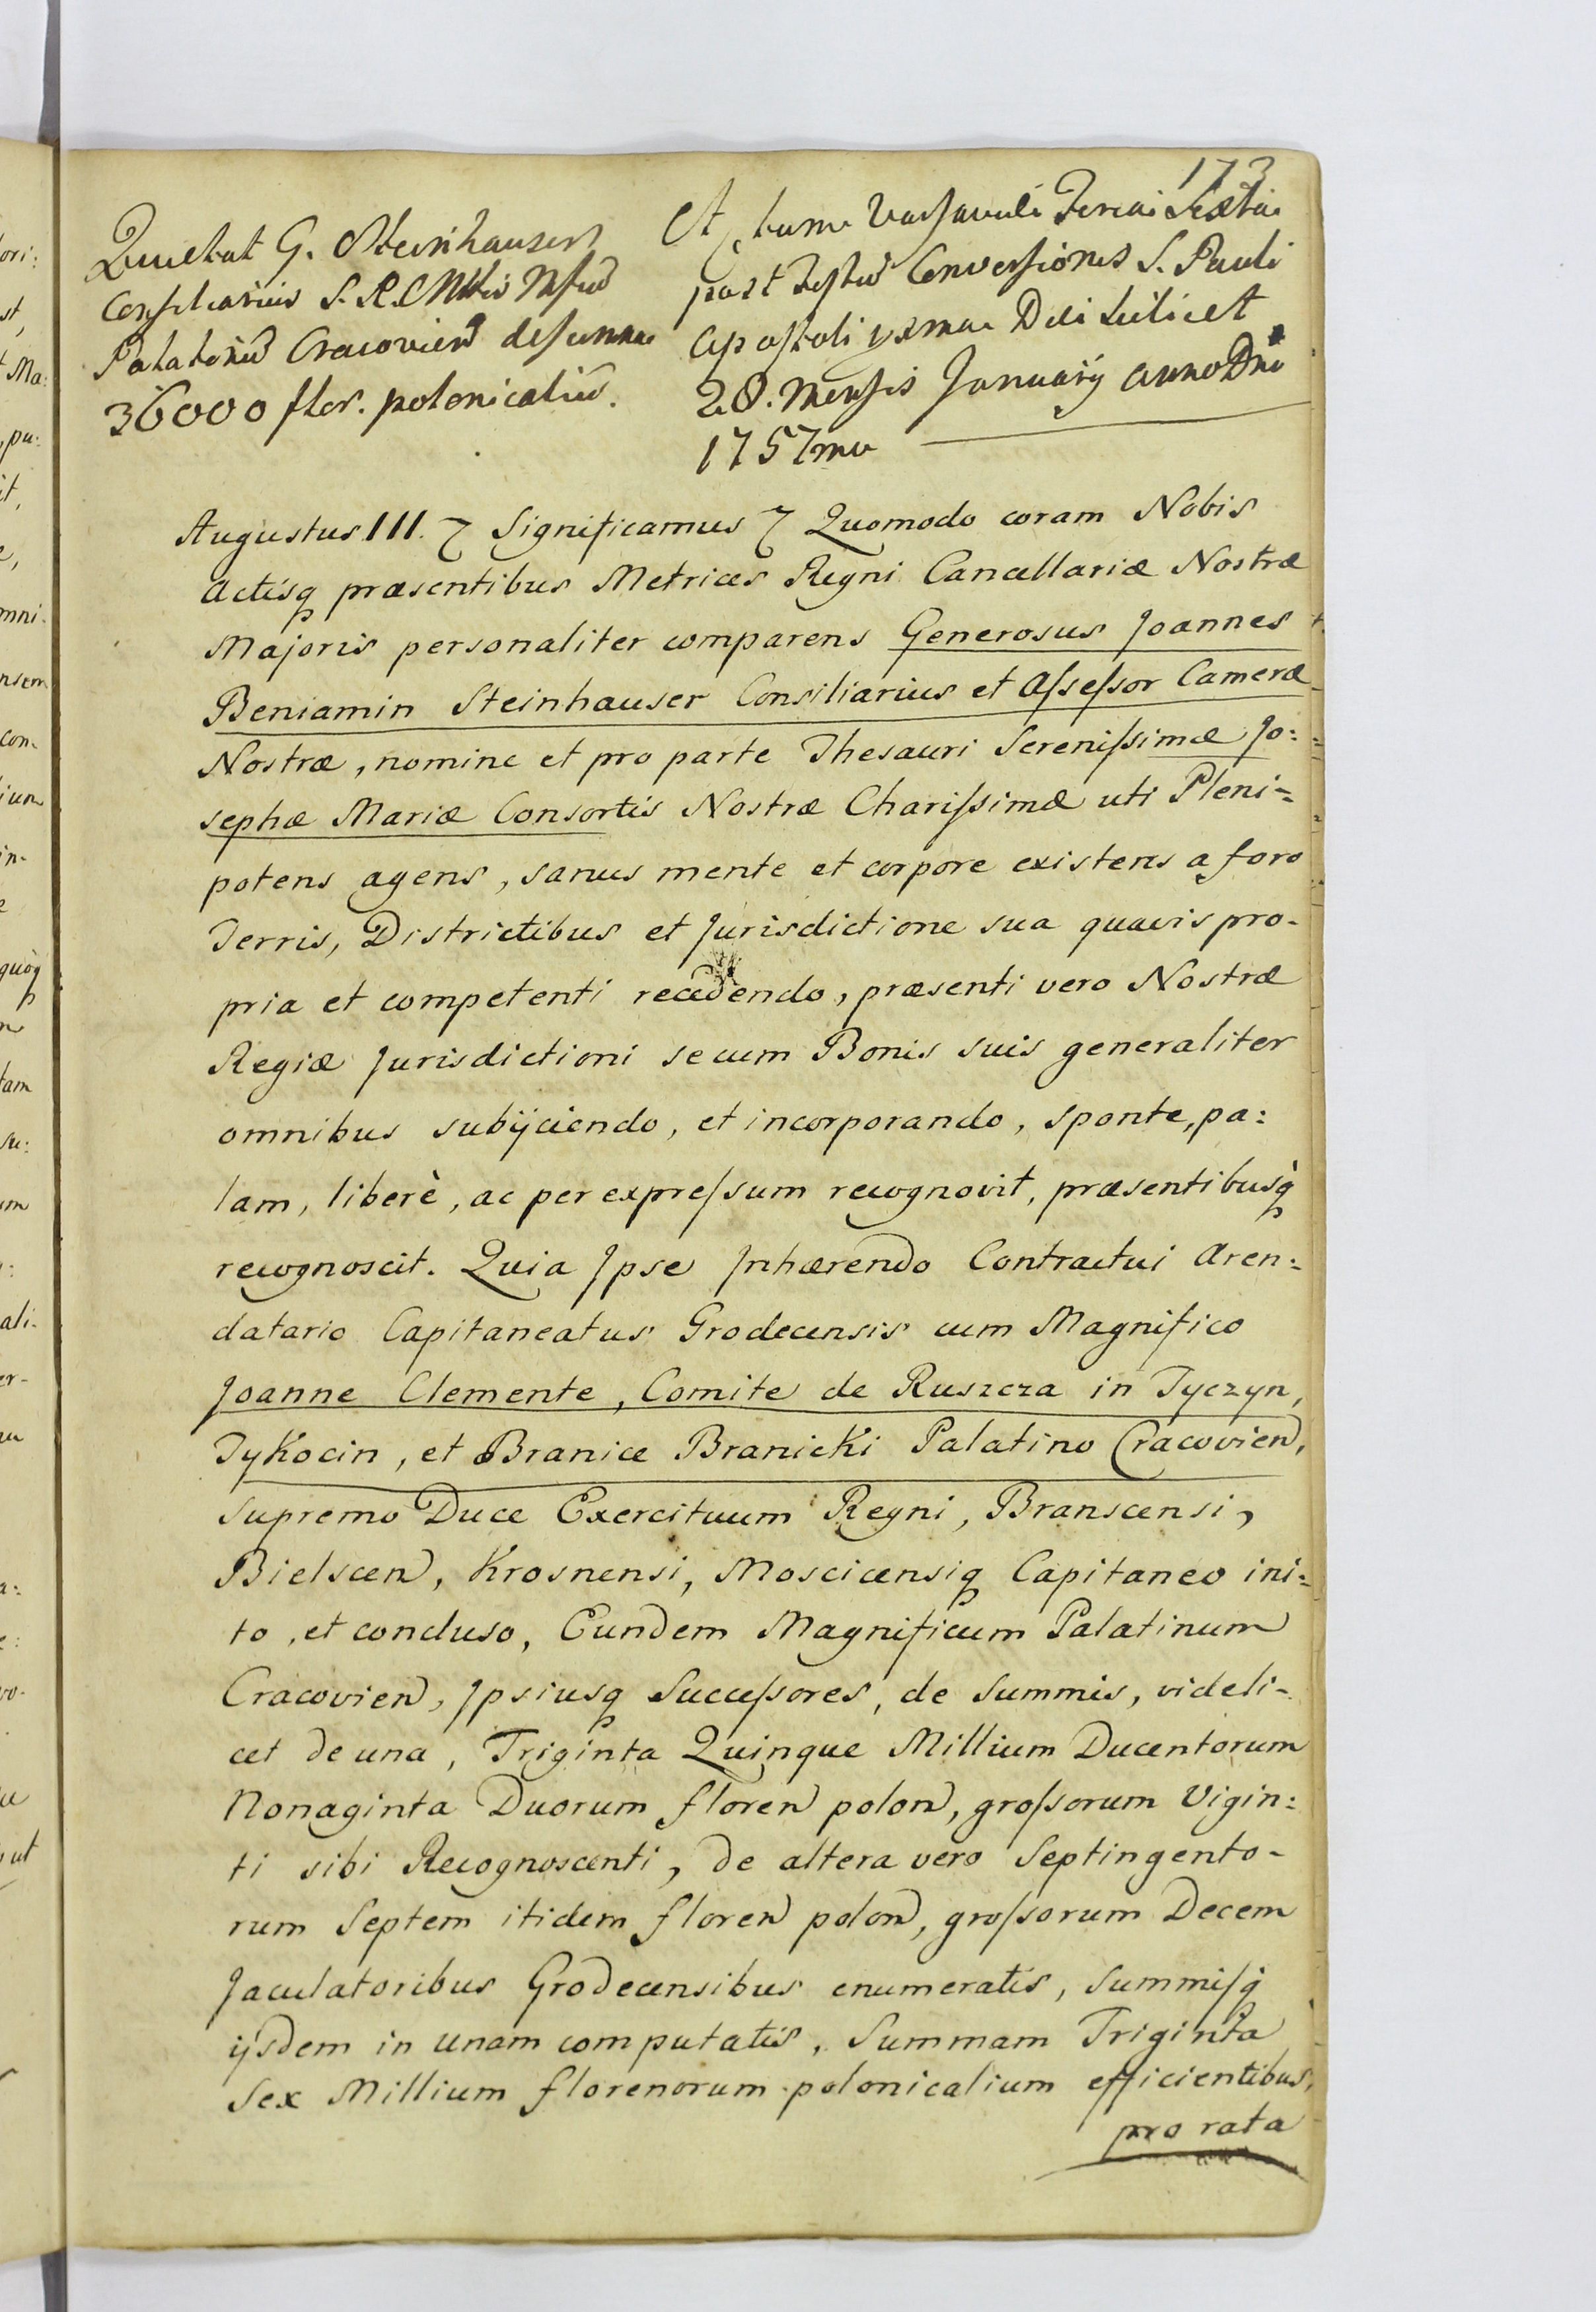 173
Quietat G. Steinhauser
Consiliarius S. R.
Palatinū Cracovień de summa
36000 flor. polonicaliū.
Actum Varsaviæ Feria Sexta
post Festū Conversionis S. Pauli
Apostoli Dei scilicet
28. Mensis Januarij anno Dni
1757mo
Augustus III. Significamus Quomodo coram Nobis
Actisq præsentibus Metrices Regni Cancellariæ Nostræ
Majoris personaliter comparens Generosus Joannes
Beniamin Steinhauser Consiliarius et Aſseſsor Cameræ
Nostræ, nomine et pro parte Thesauri Sereniſsimæ Jo:
sephæ Mariæ Consortis Nostræ Chariſsimæ uti Pleni=
potens agens, sanus mente et corpore existens a foro
Terris, Districtibus et Jurisdictione sua quavis pro-
pria et competenti recedendo, præsenti vero Nostræ
Regiæ Jurisdictioni se cum Bonis suis generaliter
omnibus subijciendo, et incorporando, sponte, pa:
lam, liberè, ac per expreſsum recognovit, præsentibusq̀
recognoscit. Quia Jpse Jnhærendo Contractui Aren:
datario Capitaneatus Grodecensis cum Magnifico
Joanne Clemente, Comite de Ruszcza in Tyczyn,
Tykocin, et Branice Branicki Palatino Cracovień,
supremo Duce Exercituum Regni, Branscensi,
Bielsceń, Krosnensi, Moscicensiq Capitaneo ini:
to, et concluso, Eundem Magnificum Palatinum
Cracovień, Jpsiusq Succeſsores, de Summis, videli-
cet de una, Triginta Quinque Millium Ducentorum
Nonaginta Duorum floreń poloń, groſsorum Vigin:
ti sibi Recognoscenti, de altera vero Septingento-
rum Septem itidem floreń poloń, groſsorum Decem
Jaculatoribus Grodecensibus enumeratis, Summiſq̀
ijsdem in unam computatis, Summam Triginta
Sex Millium florenorum polonicalium efficientibus,
pro rata